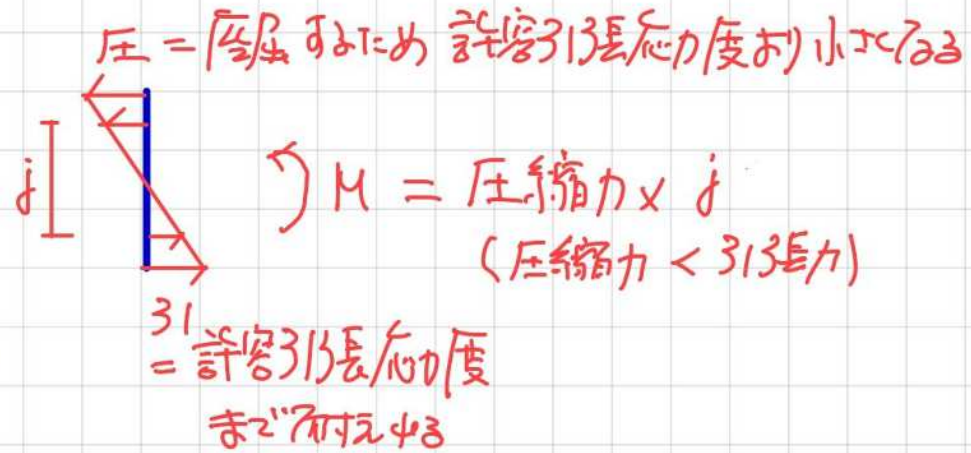 圧 = 座屈するため 許容引張応力度より小さくなる
j
M = 圧縮力 × j
(圧縮力 < 引張力)
引
= 許容引張応力度
まで耐えれる